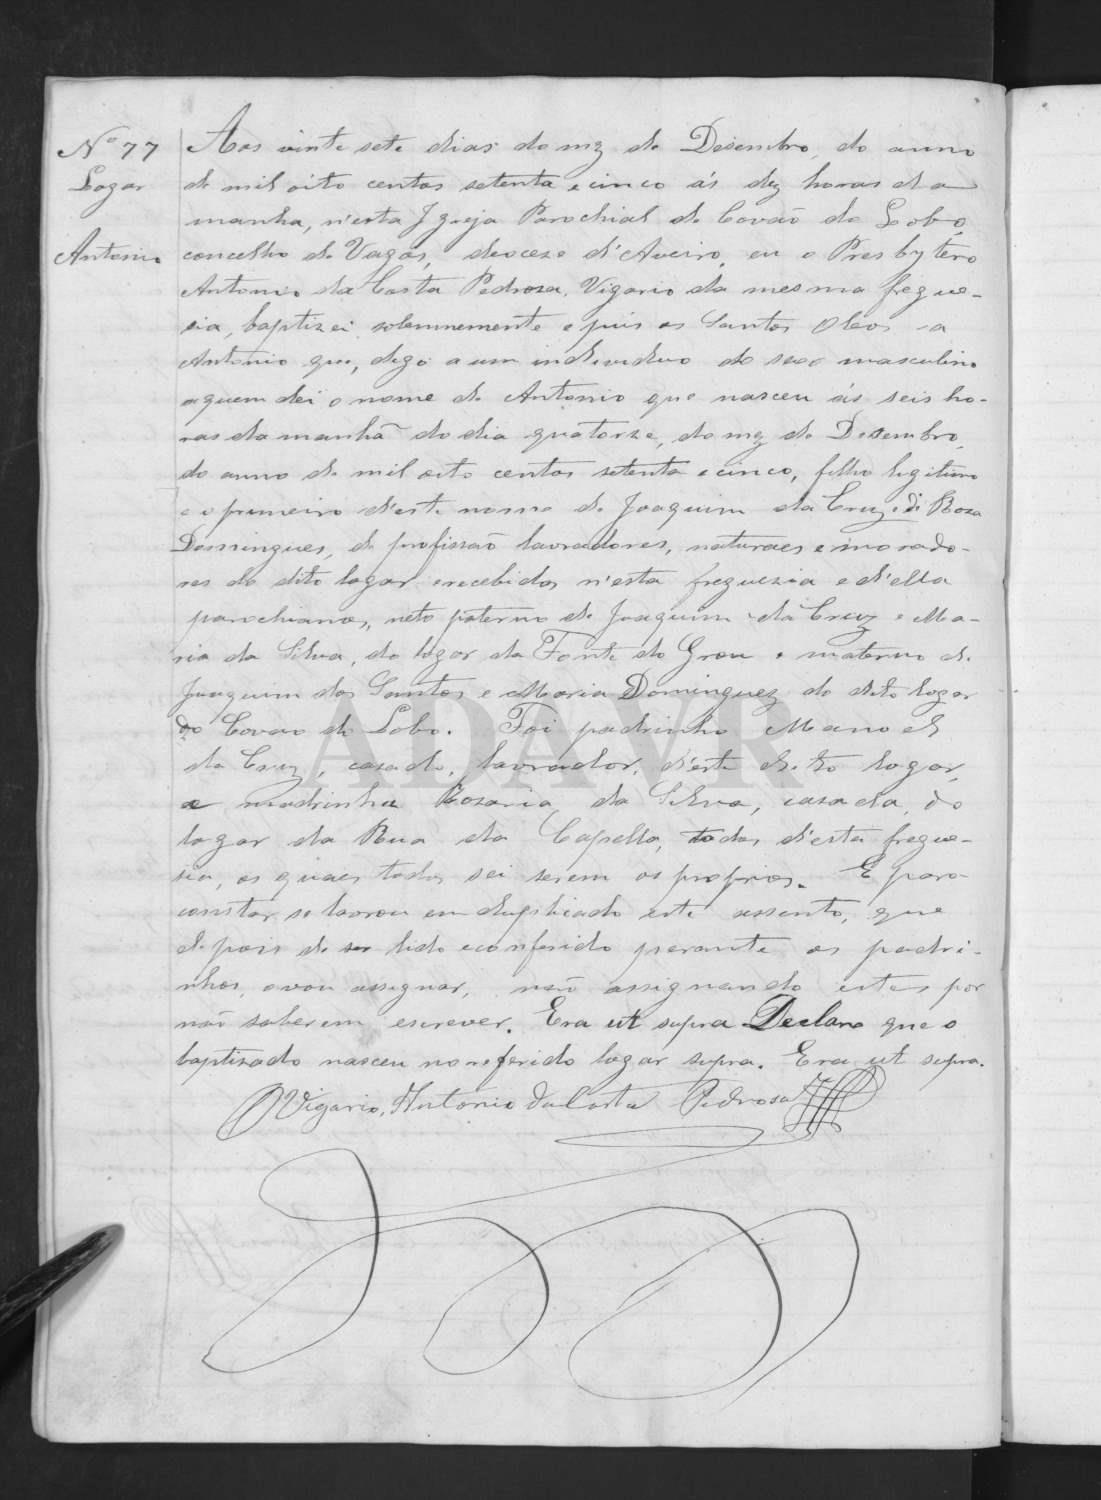 Nº 77
Logar
Antonio
Aos vinte sete dias do mez de Desembro, do anno
de mil oito centos setenta e cinco ás dez horas da
manha, n'esta Igreja Parochial de Covão do Lobo,
concelho de Vagos, deocese d'Aveiro, eu o Presbytero
Antonio da Costa Pedrosa, Vigario da mesma fregue-
sia, baptizei solemnemente e puis os Santos Oleos a
Antonio que, digo a um individuo do sexo masculino
a quem dei o nome de Antonio que nasceu ás seis ho-
ras da manhã do dia quatorze, do mez de Desembro,
do anno de mil oito centos setenta e cinco, filho legitimo
e o primeiro d'este nome de Joaquim da Cruz e di Rosa
Domingues, de profissaõ lavradores, naturaes e morado-
res do dito logar e recebidos n'esta freguezia e d'ella
parochianos, neto paterno de Joaquim da Cruz e Ma-
ria da Silva, do logar da Fonte do Grou e materno de
Joaquim dos Santos e Maria Dominguez do dito logar
do Covao do Lobo. Foi padrinho Manoel
da Cruz, casado, lavrador, d'este dito logar,
e madrinha Rosaria da Silva, casada, do
logar da Rua da Capella, todos d'esta fregue-
sia, os quaes todos sei serem os proprios. E para
constar se lavrou em duplicado este assento, que
depois de ser lido e conferido perante os padri-
nhos, o vou assignar, naõ assignando estes por
naõ saberem escrever. Era ut supra Declaro que o
baptisado nasceu no referido logar supra. Era ut supra.
O Vigario, Antonio da Costa Pedrosa
ADAVR